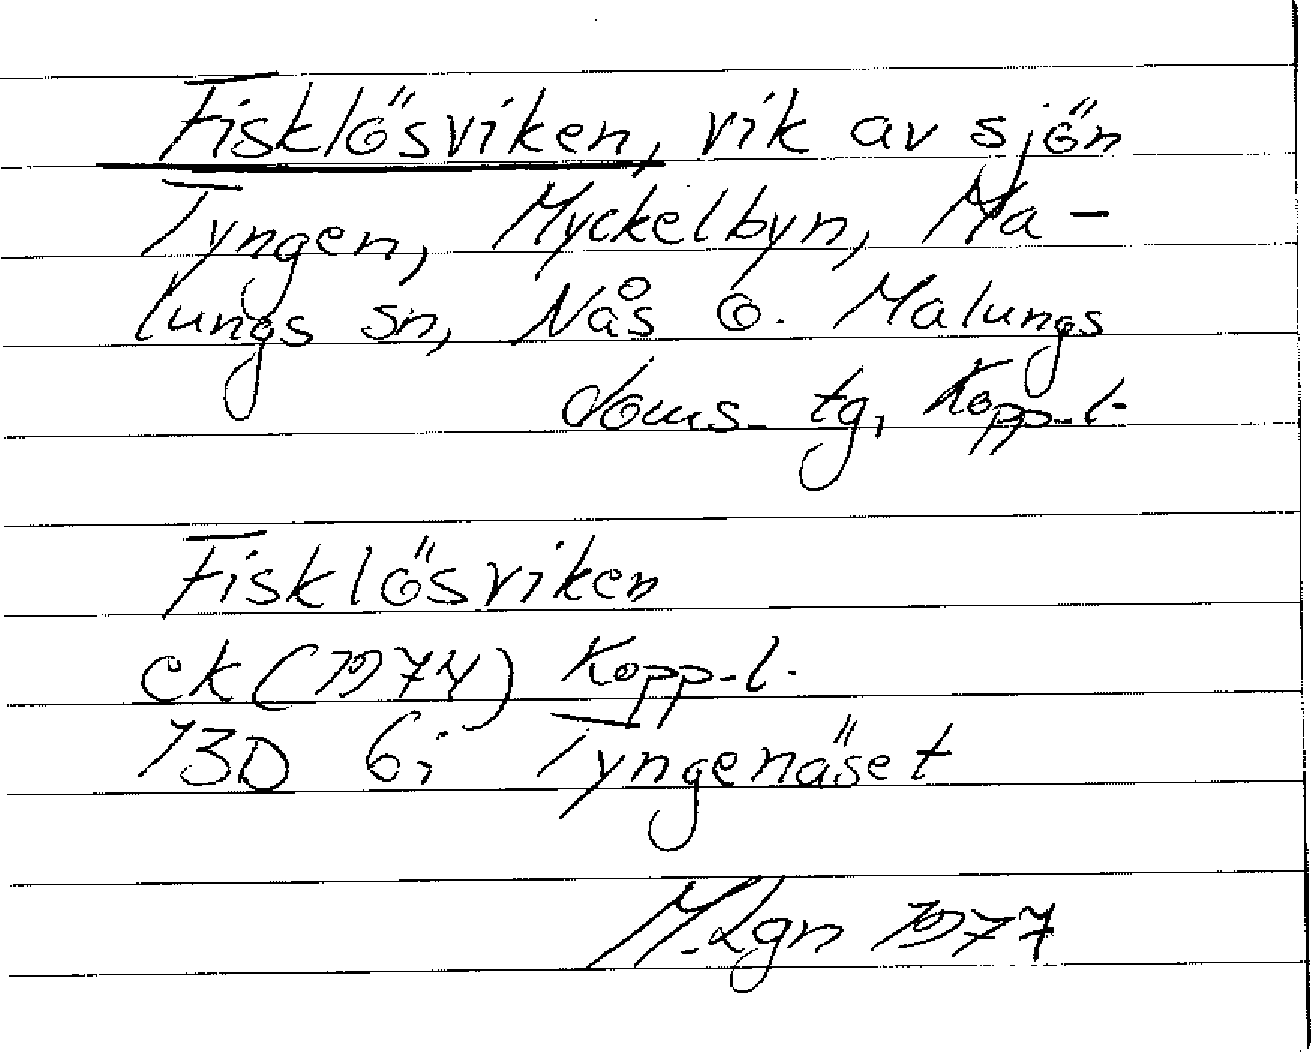 Fisklösviken, vik av sjön
Tyngen, Myckelbyn, Ma-
lungs sn, Nås o. Malungs
doms. tg, Kopp. l.
Fisklösviken
ek (1974) Kopp. l.
13D 6i Tyngenäset
M. Lgn 1977